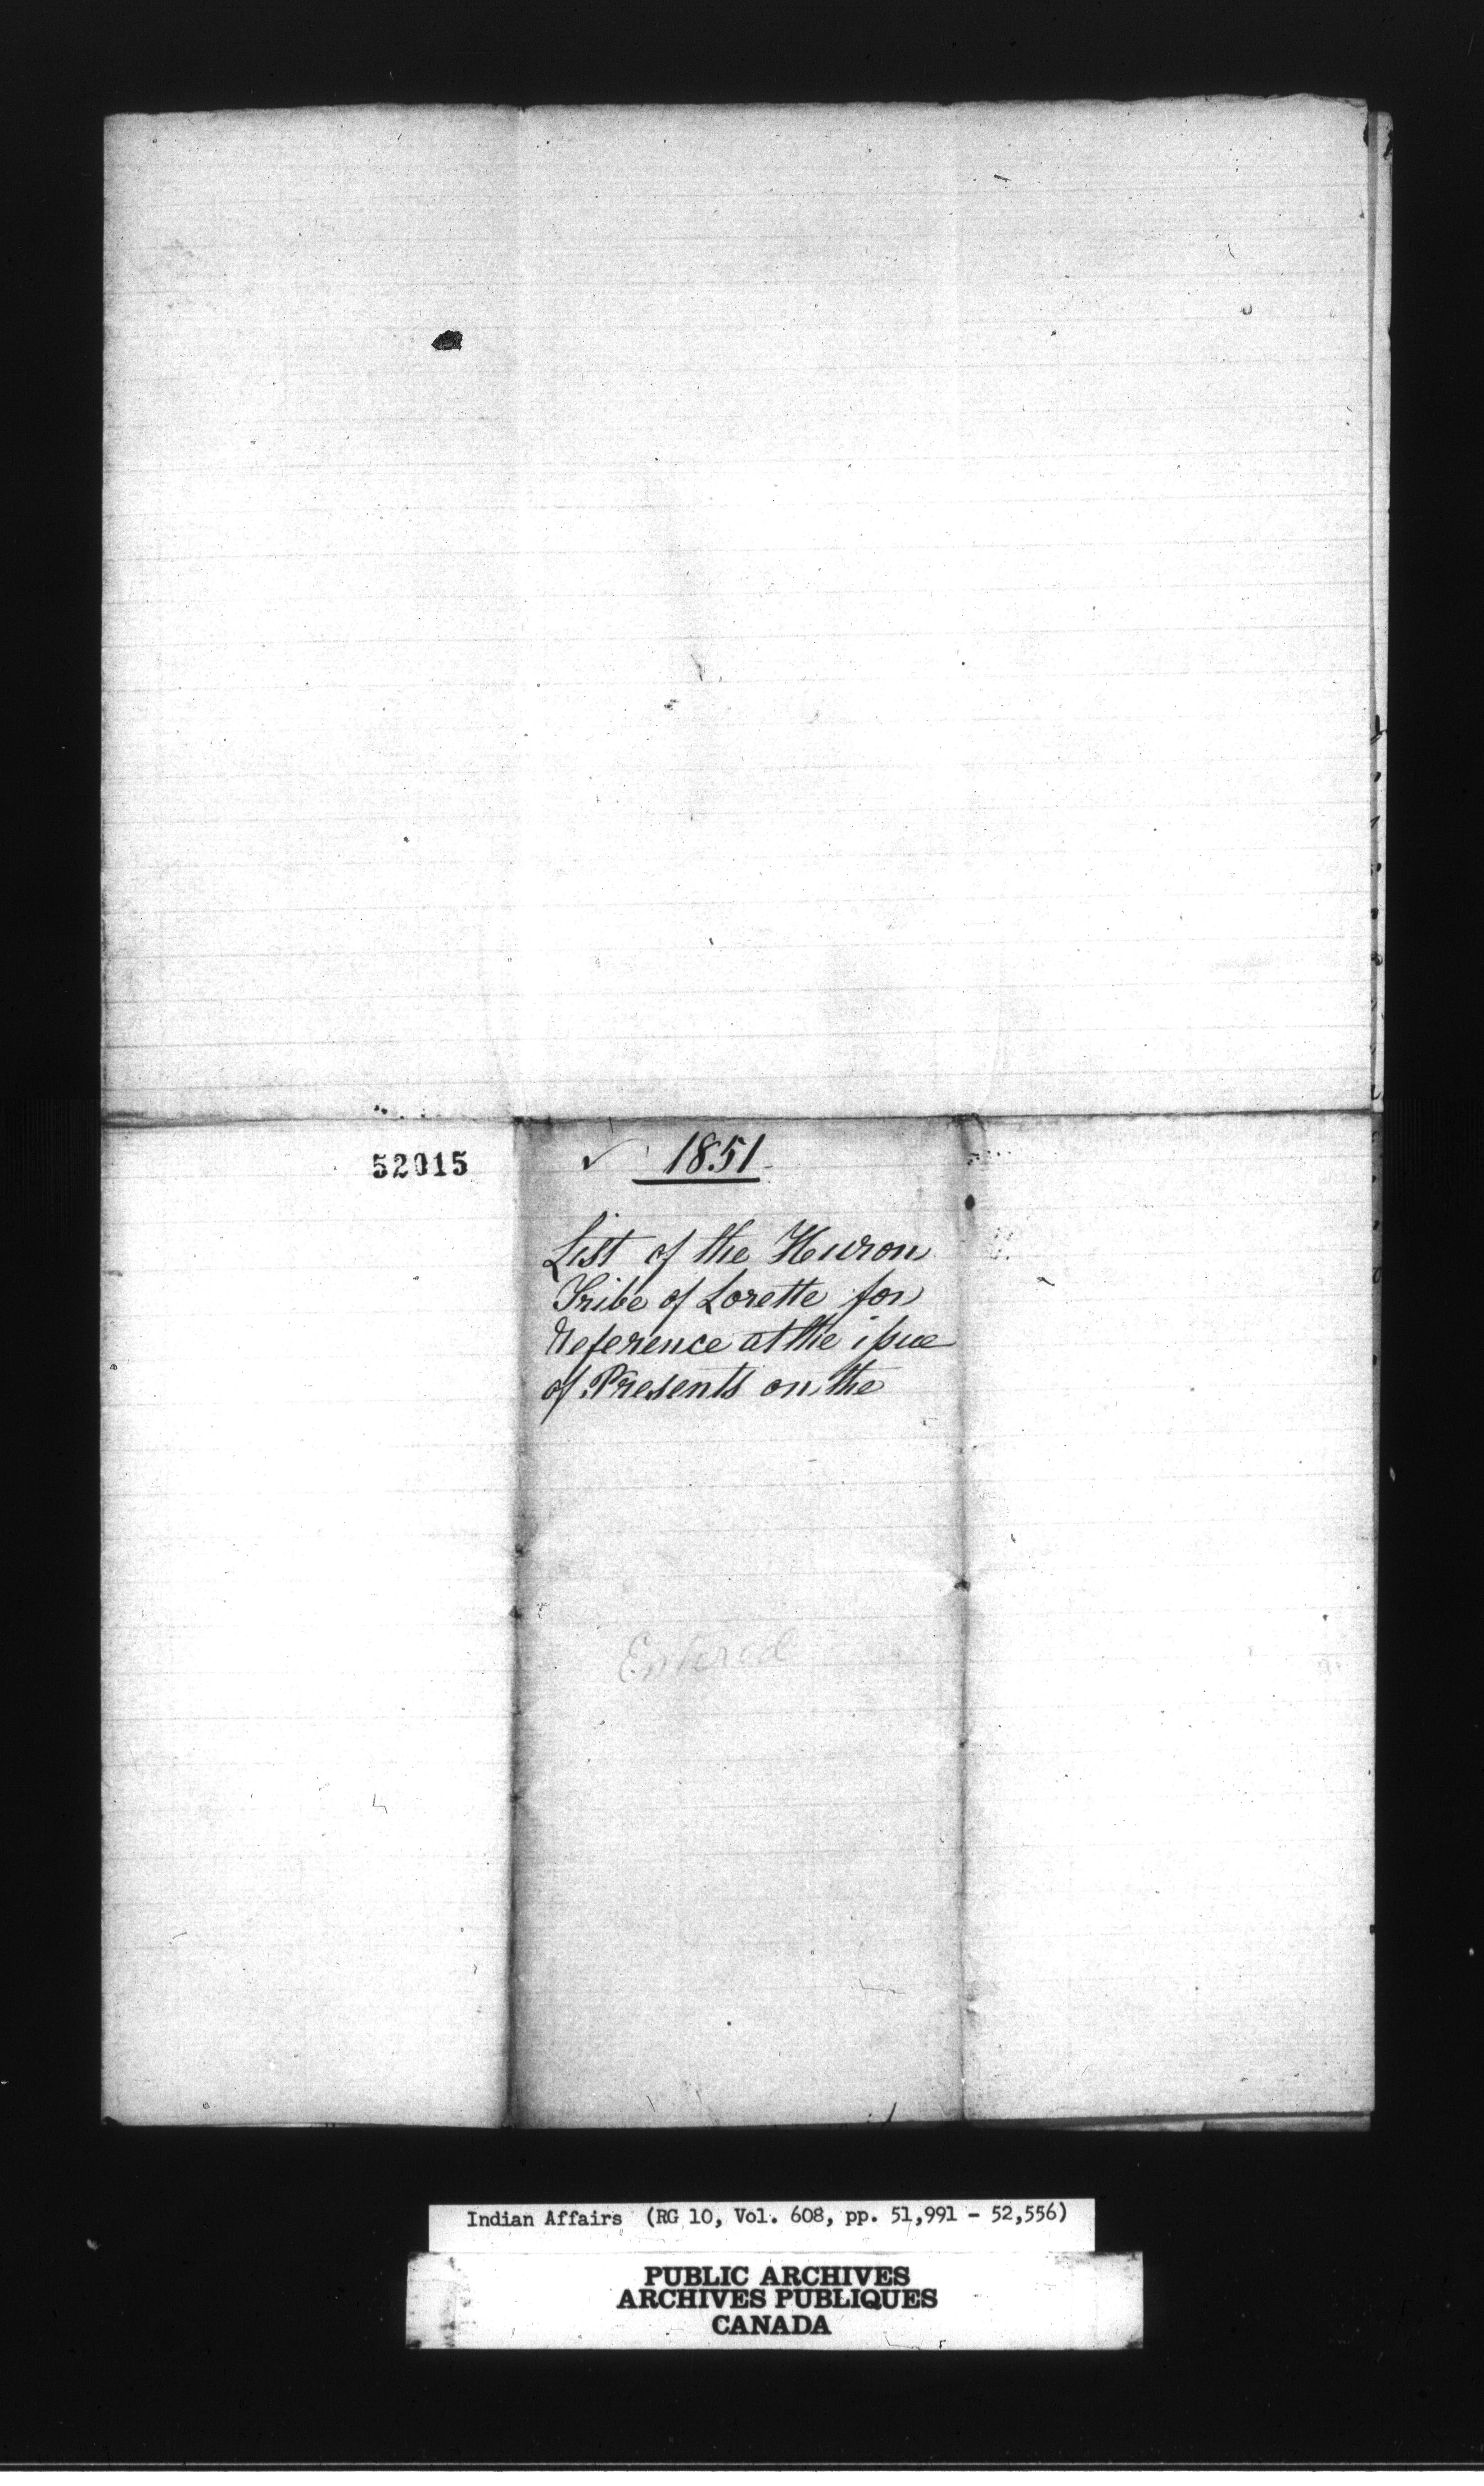 52015
✓ 1851
List of the Huron
Tribe of Lorette for
Reference at the issue
of Presents on the
Entered
Indian Affairs (RG 10, Vol. 608, pp. 51,991 - 52,556)
PUBLIC ARCHIVES
ARCHIVES PUBLIQUES
CANADA